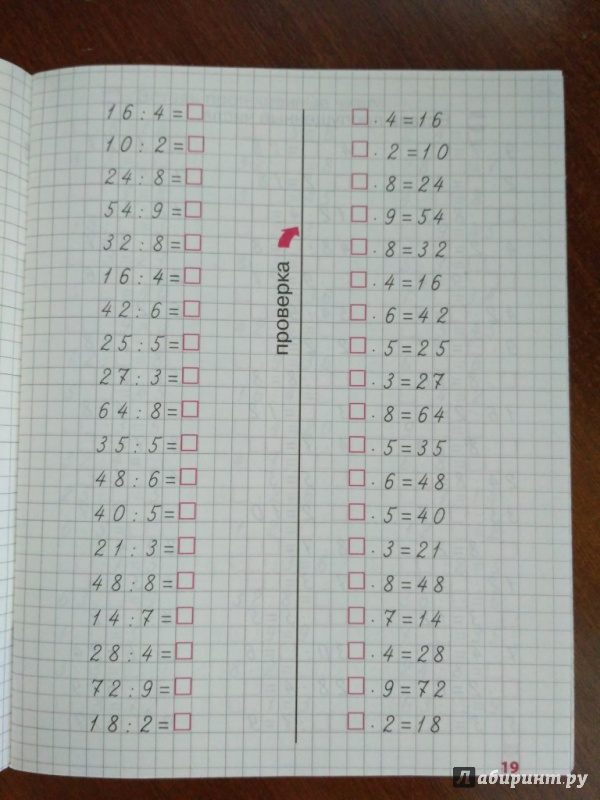 16:4=□
10:2=□
24:8=□
54:9=□
32:8=□
16:4=□
42:6=□
25:5=□
27:3=□
64:8=□
35:5=□
48:6=□
40:5=□
21:3=□
48:8=□
14:7=□
28:4=□
72:9=□
18:2=□
проверка
□·4=16
□·2=10
□·8=24
□·9=54
□·8=32
□·4=16
□·6=42
□·5=25
□·3=27
□·8=64
□·5=35
□·6=48
□·5=40
□·3=21
□·8=48
□·7=14
□·4=28
□·9=72
□·2=18
19
Лабиринт.ру